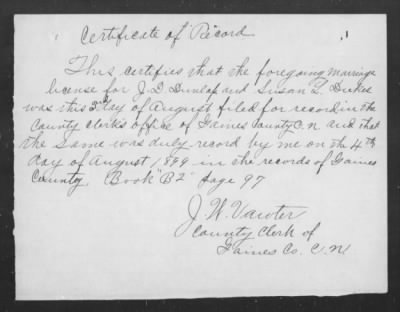 Certificate of Record
This certifies that the foregoing Marriage
license for J. D. Dunlap and Susan L. Dukes
was this 3rd day of August filed for record in the
County Clerks office of Gaines County C. N. and that
the same was duly record by me on the 4th
day of August 1899 in the records of Gaines
County Book "B2" Page 97
J. W. Vawter
County Clerk of
Gaines Co. C. N.